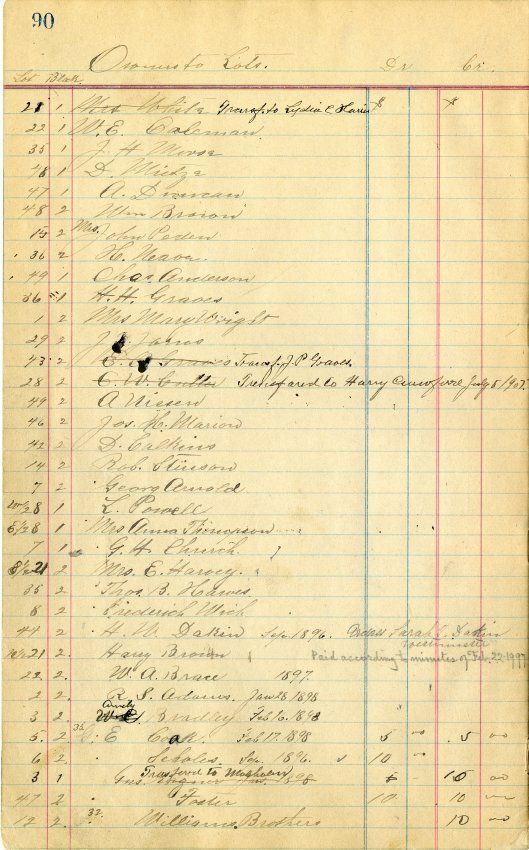 90
Owners to Lots. Dr Cr.
Lot Block
21 1 Mrs White Transf. to Lydia C Harris $ $
22 1 W. E. Coleman
35 1 J. H. Morse
48 1 D.
47 1 A. Duncan
48 2 Wm Brown
15 2 Mrs. John Peden
36 2 H. Weaver
49 1 Chas. Anderson
36 1 H. H. Graves
1 2 Mrs Mary Wright
29 2 J.
43 2 E. Graves Transf. J. P Graves
28 2 C. W. Transfered to Harry July 5 1907
49 2 A Nissen
46 2 Jos. H. Marion
42 2 D. Calkins
14 2 Rob. Stinson
7 2 Georg Arnold
28 1 L. Powell
28 1 Mrs Anna Thompson
7 1 G. H. Church
21 2 Mrs. E. Harvey
35 2 Thos B. Hawes
8 2 Frederich
44 2 H. W. Dakin Sep. 1896. Sarah C. Dakin
Westminster
21 2 Harry Brown Paid according to minutes of Feb. 22-1997
22 2 W. A. Brace 1897.
2 2 R. S. Adams. Jan 28 1898
3 2 Bradley Feb 16. 1898
5 2 E Cook Feb 17. 1898 5 00 5 00
6 2 Scholes Sep. 1896. 10 00
3 1 Gus. Transfered to 1898 10 00
47 2 Foster 10 10
12 2 Williams Brothers 10 00